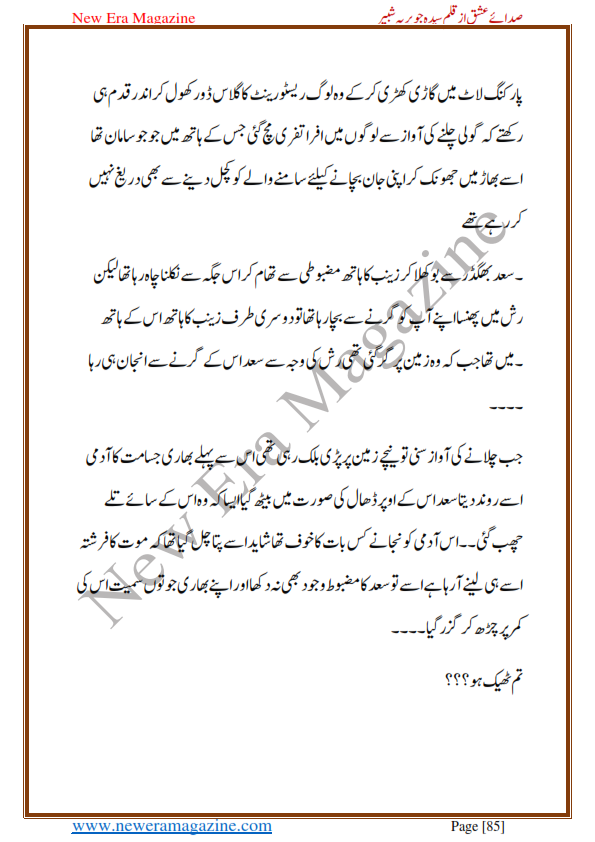 New Era Magazine
صدائے عشق از قلم سیدہ جویریہ شبیر
پارکنگ لاٹ میں گاڑی کھڑی کر کے وہ لوگ ریسٹورینٹ کا گلاس ڈور کھول کر اندر قدم ہی
رکھتے کہ گولی چلنے کی آواز سے لوگوں میں افراتفری مچ گئی جس کے ہاتھ میں جو جو سامان تھا
اسے بھاڑ میں جھونک کر اپنی جان بچانے کیلئے سامنے والے کو کچل دینے سے بھی دریغ نہیں
کر رہے تھے
۔ سعد بھگدڑ سے بوکھلا کر زینب کا ہاتھ مضبوطی سے تھام کر اس جگہ سے نکلنا چاہ رہا تھا لیکن
رش میں پھنسا اپنے آپ کو گرنے سے بچا رہا تھا تو دوسری طرف زینب کا ہاتھ اس کے ہاتھ
۔ میں تھا جب کہ وہ زمین پر گر گئی تھی رش کی وجہ سے سعد اس کے گرنے سے انجان ہی رہا
۔۔۔۔
جب چلانے کی آواز سنی تو نیچے زمین پر پڑی بلک رہی تھی اس سے پہلے بھاری جسامت کا آدمی
اسے روند دیتا سعد اس کے اوپر ڈھال کی صورت میں بیٹھ گیا ایسا کہ وہ اس کے سائے تلے
چھپ گئی۔۔ اس آدمی کو نجانے کس بات کا خوف تھا شاید اسے پتا چل گیا تھا کہ موت کا فرشتہ
اسے ہی لینے آ رہا ہے اسے تو سعد کا مضبوط وجود بھی نہ دکھا اور اپنے بھاری جوتوں سمیت اس کی
کمر پر چڑھ کر گزر گیا۔۔۔۔
تم ٹھیک ہو؟؟؟
New Era Magazine
www.neweramagazine.com
Page [85]